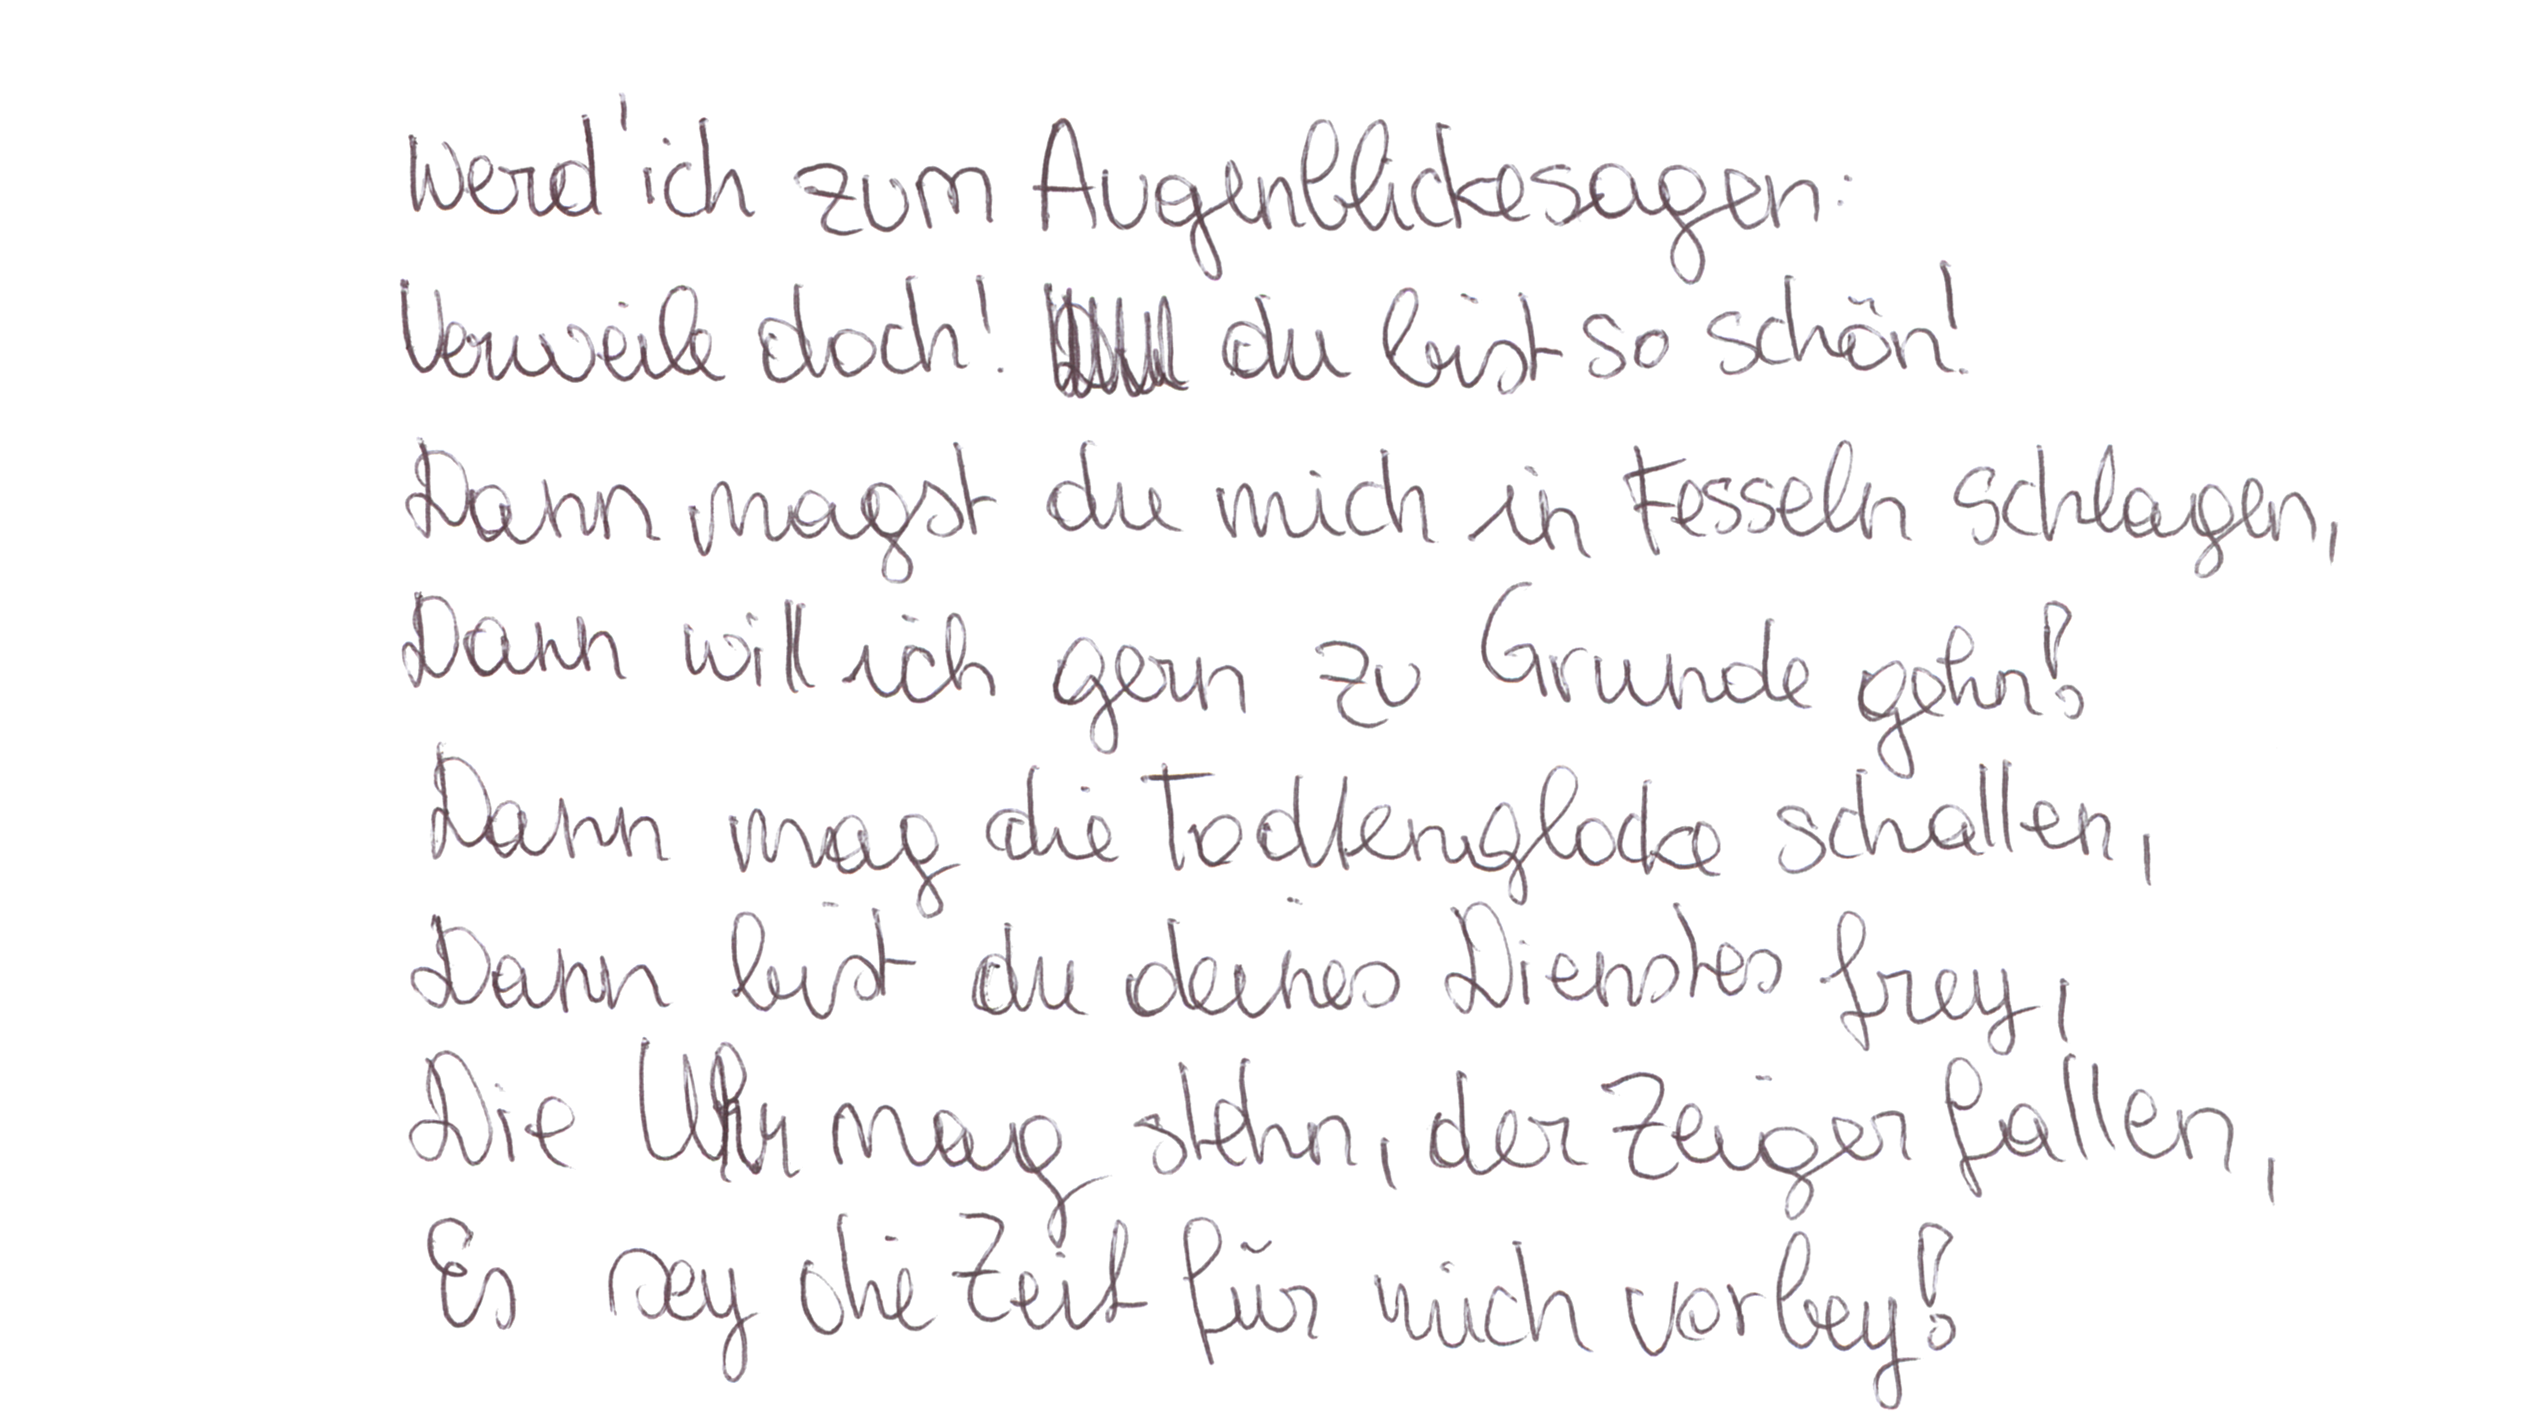 Werd' ich zum Augenblickesagen:
Verweile doch! du bist so schön!
Dann magst du mich in Fesseln schlagen,
Dann will ich gern zu Grunde gehn!
Dann mag die Todtenglocke schallen,
Dann bist du deines Dienstes frey,
Die Uhr mag stehn, der Zeiger fallen,
Es sey die Zeit für mich vorbey!